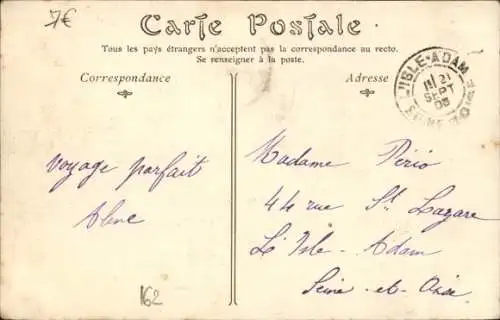 7€
Carte Postale
Tous les pays étrangers n'acceptent pas la correspondance au recto.
Se renseigner à la poste.
Correspondance
Adresse
L'ISLE-ADAM
21
SEPT
08
Voyage parfait
Madame Pério
44 rue St Lazare
L'Isle-Adam
Seine-et-Oise
162